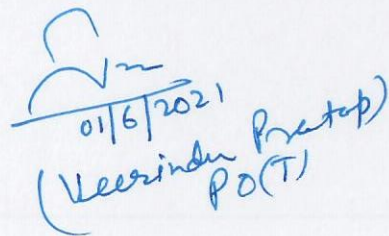 01/6/2021
(Veerinder Pratap)
PO(T)